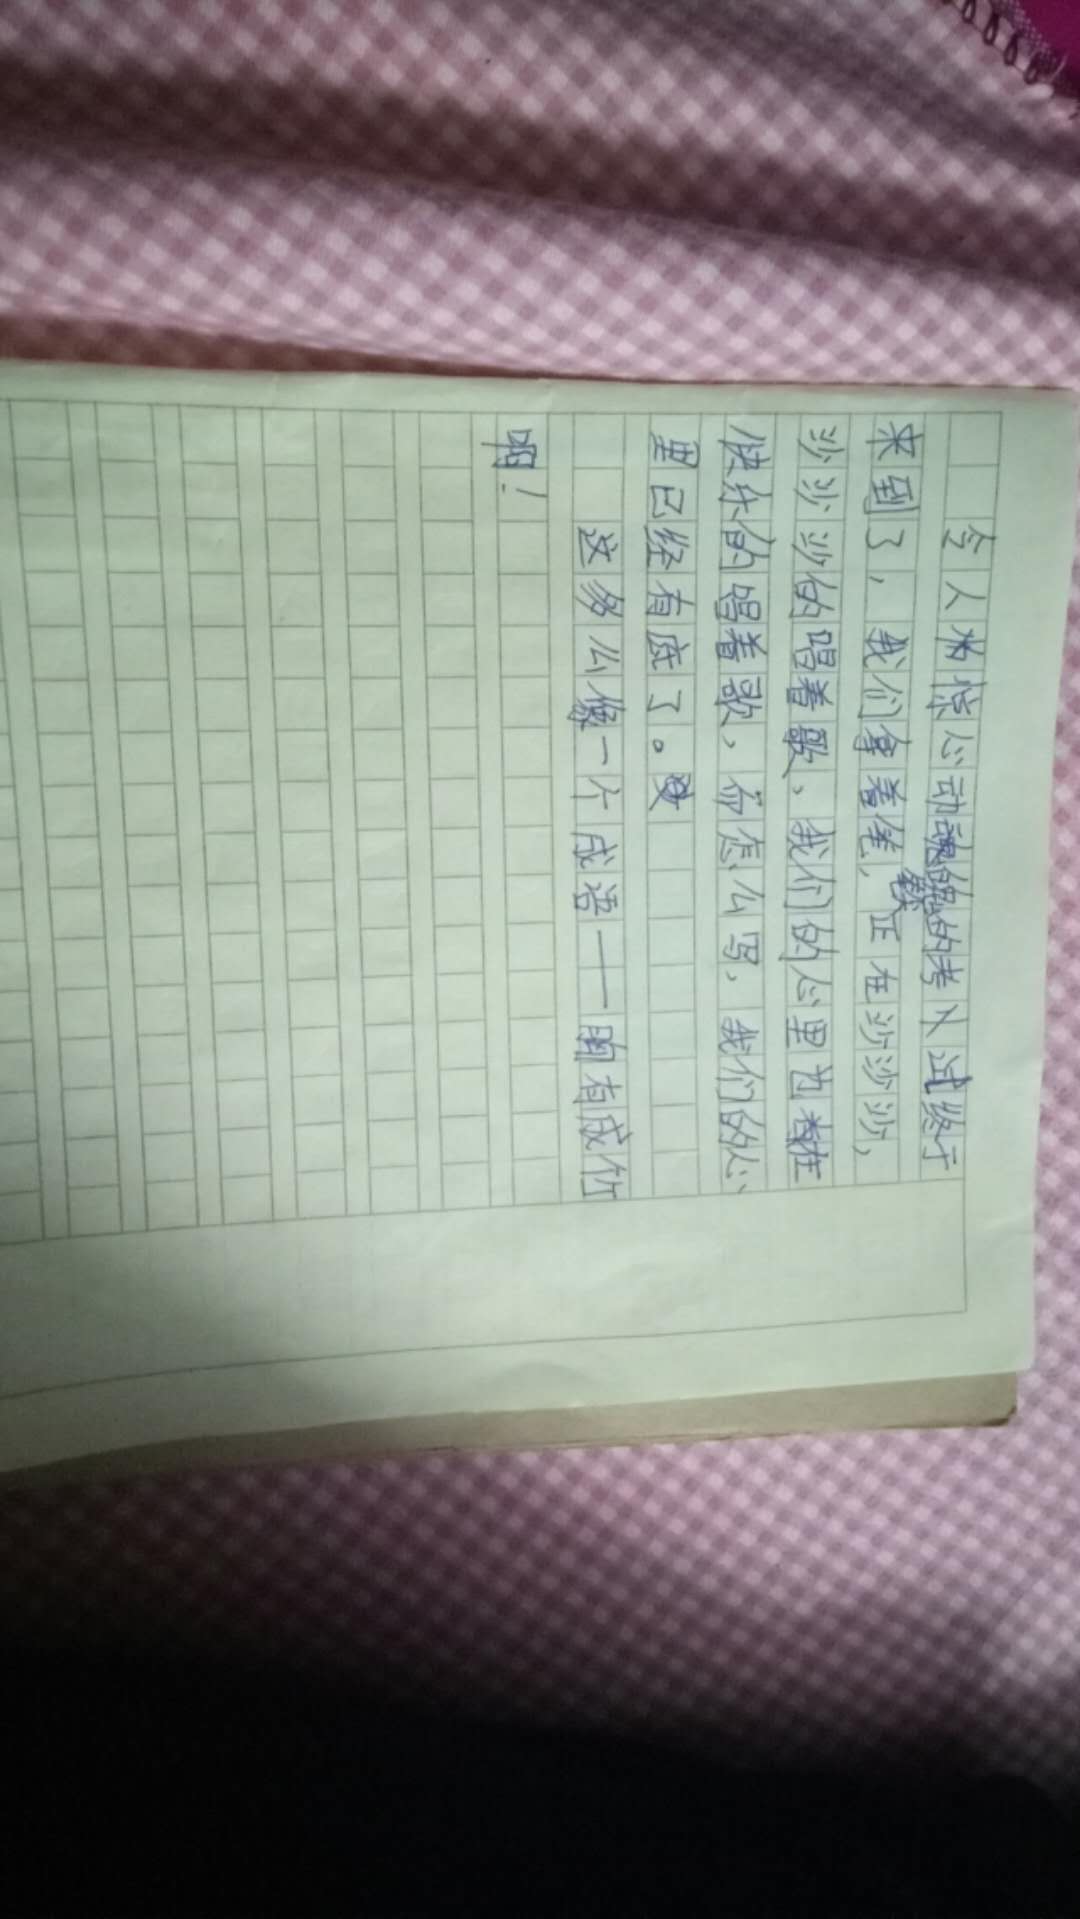 令人惊心动魄的考试终于
来到了，我们拿着笔，正在沙沙沙，
沙沙沙的唱着歌、我们的心里也在
快乐的唱着歌，怎么写，我们的心
里已经有底了。
这多么像一个成语——胸有成竹
啊！